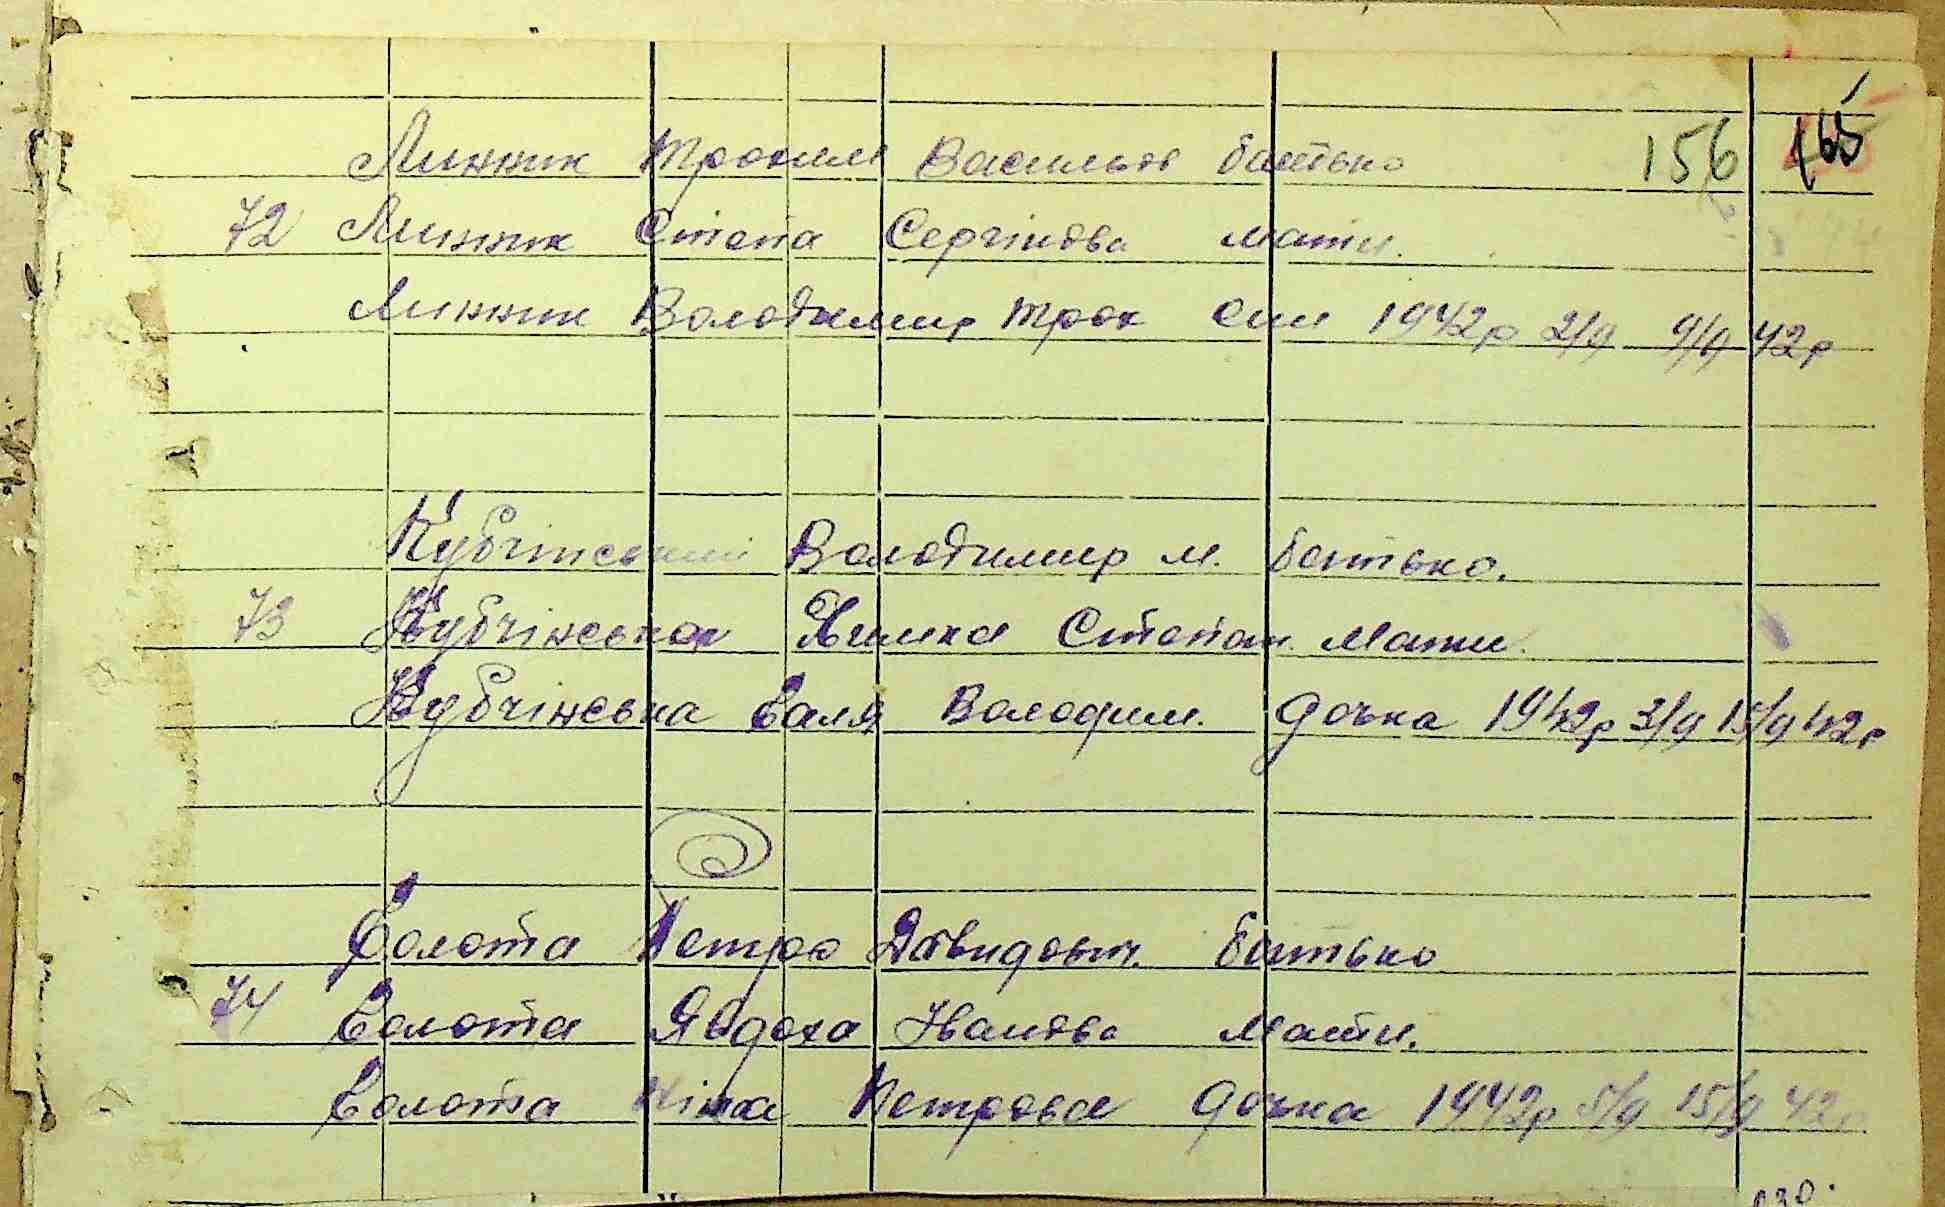 156 165
Линник Трохим Васильов батько
72 Линник Степа Сергійова мати.
Линник Володимир Трох син 1942р 2/9 9/9 42р
Кубчінський Володимир м. батько.
73 Кубчінська Ялика Степан. мати.
Кубчінська Валя Володим. дочка 1942р 3/9 15/9 42р
Волота Петро Давидович. батько
74 Волота Явдоха Іванова мати.
Волота Ніна Петрова дочка 1942р 5/9 15/9 42р